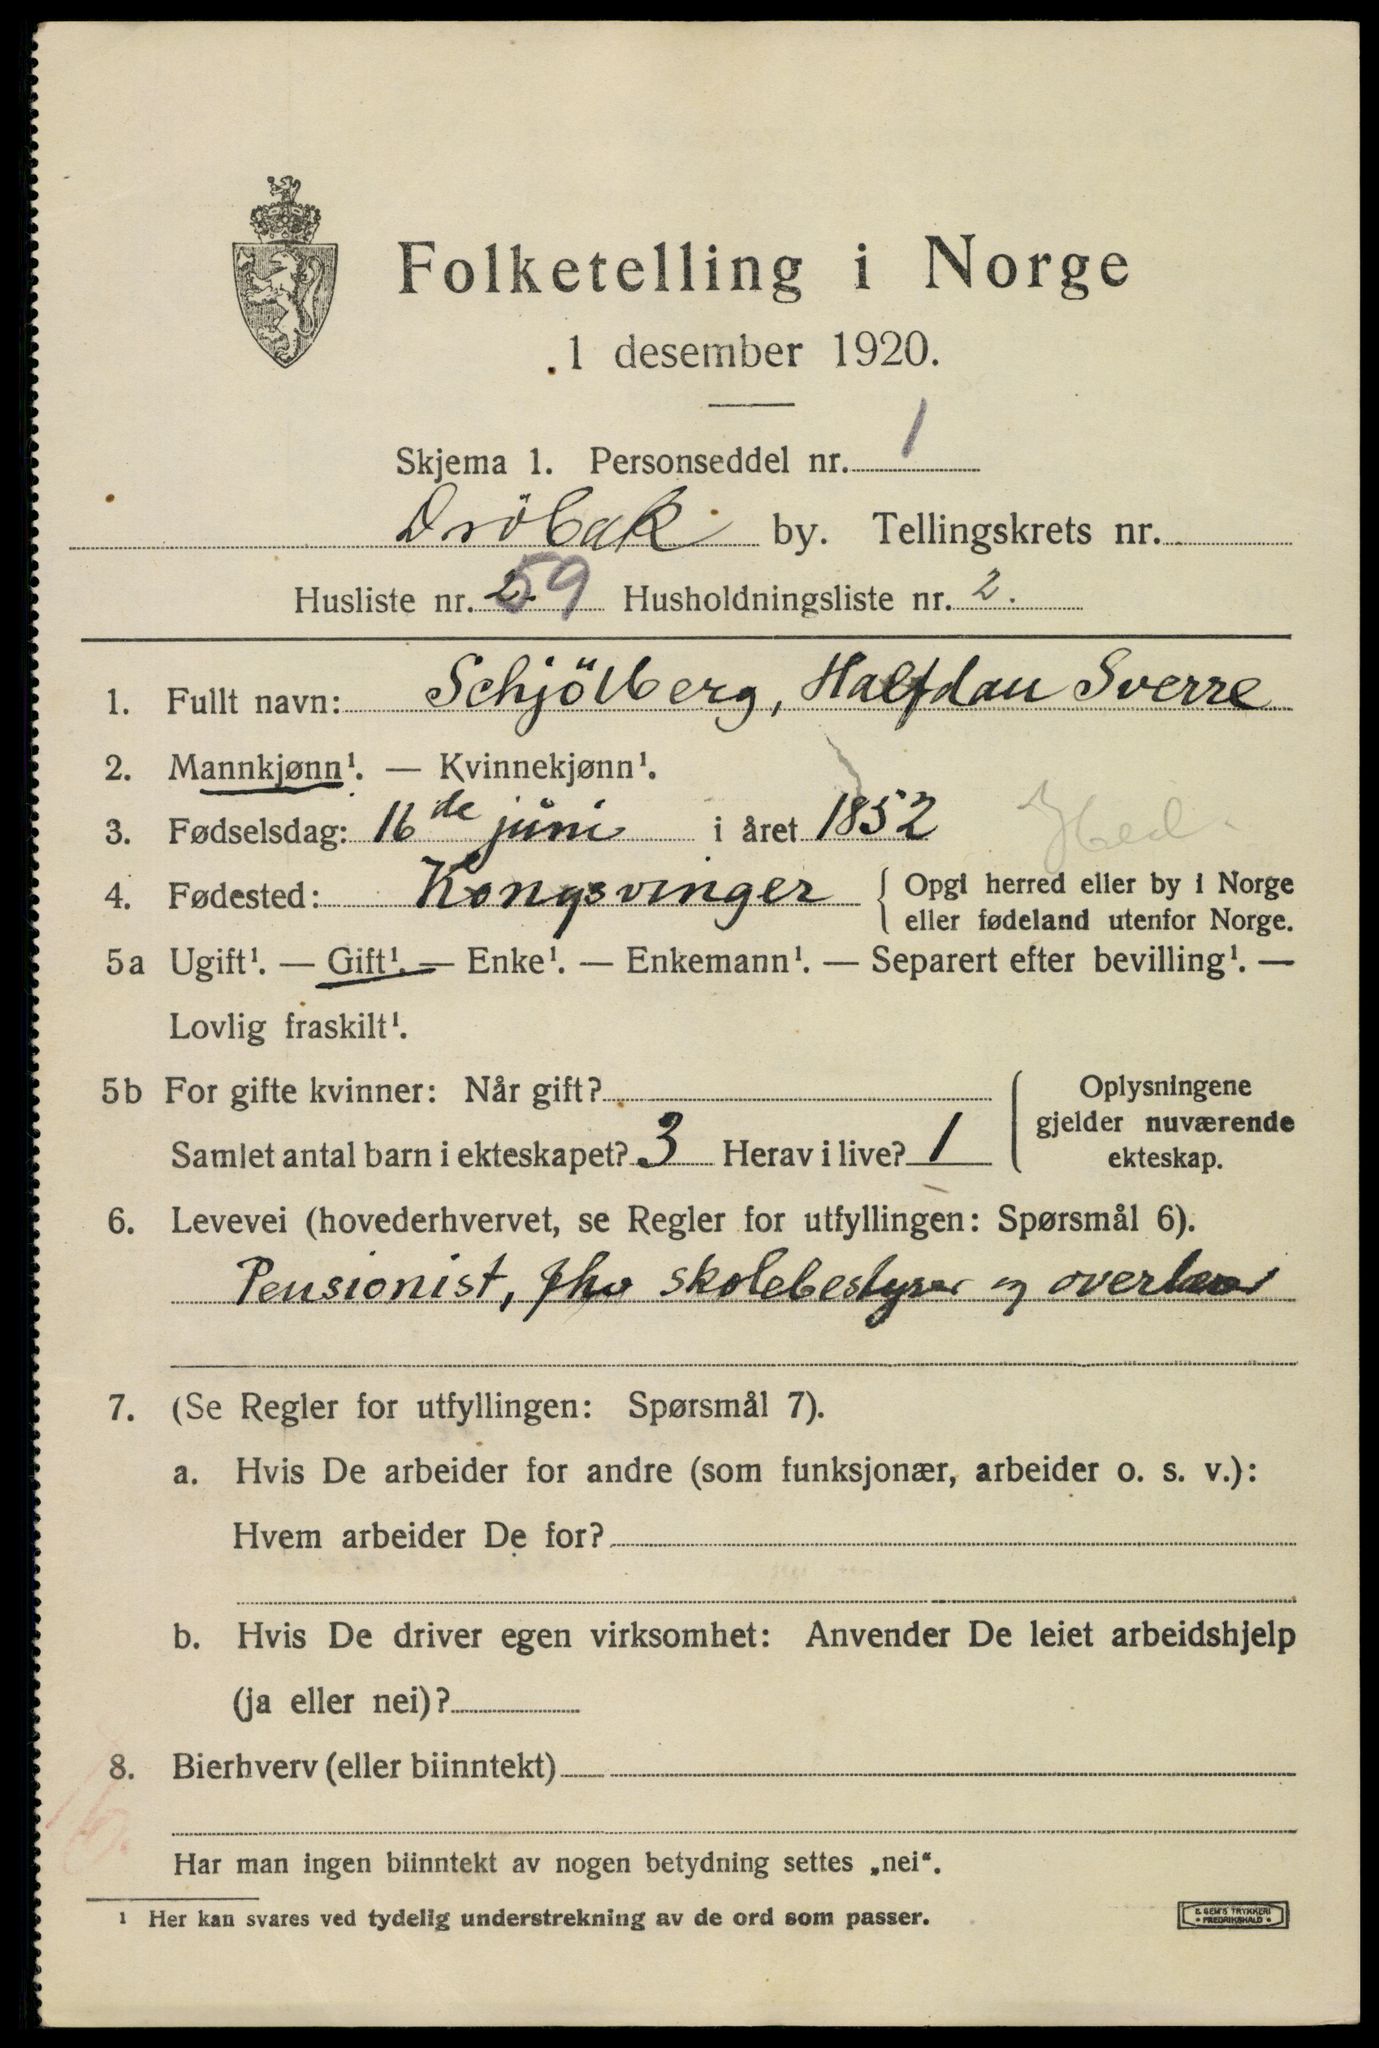 Folketelling i Norge
1 desember 1920.
Skjema 1. Personseddel nr. 1
Dröbak by. Tellingskrets nr.
Husliste nr. 2. 59 Husholdningsliste nr. 2.
1. Fullt navn: Schjölberg, Halfdan Sverre
2. Mannkjønn¹. — Kvinnekjønn¹.
3. Fødselsdag: 16de juni i året 1852 Hed.
4. Fødested: Kongsvinger { Opgi herred eller by i Norge
eller fødeland utenfor Norge.
5a Ugift¹. — Gift¹. — Enke¹. — Enkemann¹. — Separert efter bevilling¹. —
Lovlig fraskilt¹.
5b For gifte kvinner: Når gift? Oplysningene
gjelder nuværende
Samlet antal barn i ekteskapet? 3 Herav i live? 1 ekteskap.
6. Levevei (hovederhvervet, se Regler for utfyllingen: Spørsmål 6).
Pensionist, fhv skolebestyrer og overlærer
7. (Se Regler for utfyllingen: Spørsmål 7).
a. Hvis De arbeider for andre (som funksjonær, arbeider o. s. v.):
Hvem arbeider De for?
b. Hvis De driver egen virksomhet: Anvender De leiet arbeidshjelp
(ja eller nei)?
8. Bierhverv (eller biinntekt)
Har man ingen biinntekt av nogen betydning settes „nei“.
¹ Her kan svares ved tydelig understrekning av de ord som passer.
E. SEM'S TRYKKERI
• FREDRIKSHALD •